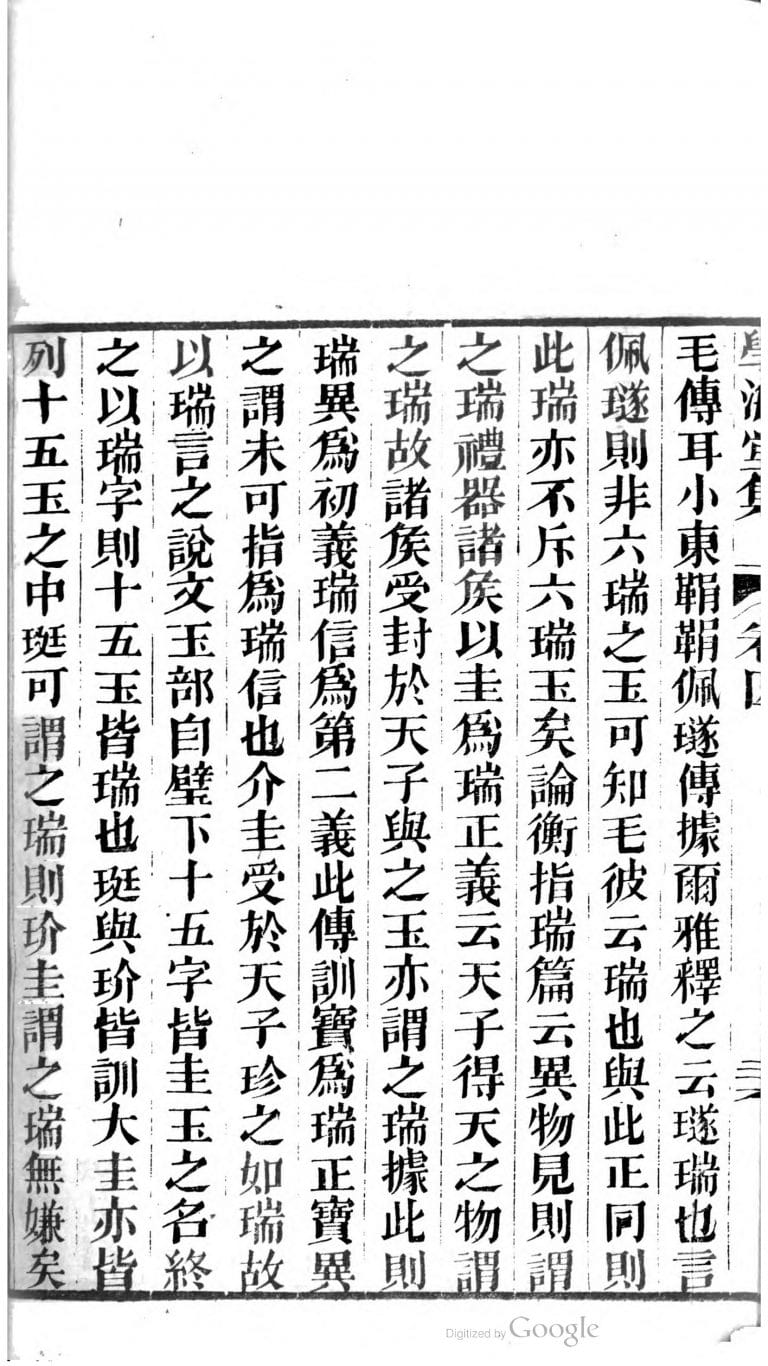 毛傳耳小東鞙鞙佩璲傳據爾雅釋之云璲瑞也言
佩璲則非六瑞之玉可知毛彼云瑞也與此正同則
此瑞亦不斥六瑞玉矣論衡指瑞篇云異物見則謂
之瑞禮器諸矦以圭爲瑞正義云天子得天之物謂
之瑞故諸矦受封於天子與之玉亦謂之瑞據此則
瑞異爲初義瑞信爲第二義此傳訓寶爲瑞正寶異
之謂未可指爲瑞信也介圭受於天子珍之如瑞故
以瑞言之說文玉部自璧下十五字皆圭玉之名終
之以瑞字則十五玉皆瑞也珽與玠皆訓大圭亦皆
列十五玉之中珽可謂之瑞則玠圭謂之瑞無嫌矣
Digitized by Google